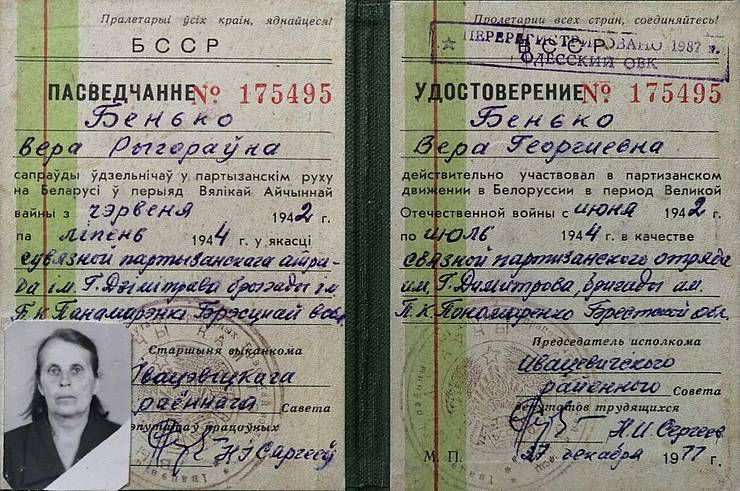 Пралетарыі ўсіх краін, яднайцеся!
БССР
ПАСВЕДЧАННЕ № 175495
Бенько
Вера Рыгораўна
сапраўды ўдзельнічаў у партызанскім руху
на Беларусі ў перыяд Вялікай Айчыннай
вайны з чэрвеня 1942 г.
па ліпень 1944 г. у якасці
сувязной партызанскага атра-
да ім. Г. Дзімітрава брыгады ім
П.К. Панамарэнкі Брэсцкай вобл.
Старшыня выканкома
Івацэвіцкага
раённага Савета
дэпутатаў працоўных
Н.І. Сяргееў
Пролетарии всех стран, соединяйтесь!
БССР
ПЕРЕРЕГИСТРИРОВАНО 1987 г.
ОДЕССКИЙ ОВК
УДОСТОВЕРЕНИЕ № 175495
Бенько
Вера Георгиевна
действительно участвовал в партизанском
движении в Белоруссии в период Великой
Отечественной войны с июня 1942 г.
по июль 1944 г. в качестве
связной партизанского отряда
им. Г. Димитрова, бригады им.
П.К. Пономаренко Брестской обл.
Председатель исполкома
Ивацевичского
районного Совета
депутатов трудящихся
Н.И. Сергеев
М. П. 27 декабря 1977 г.